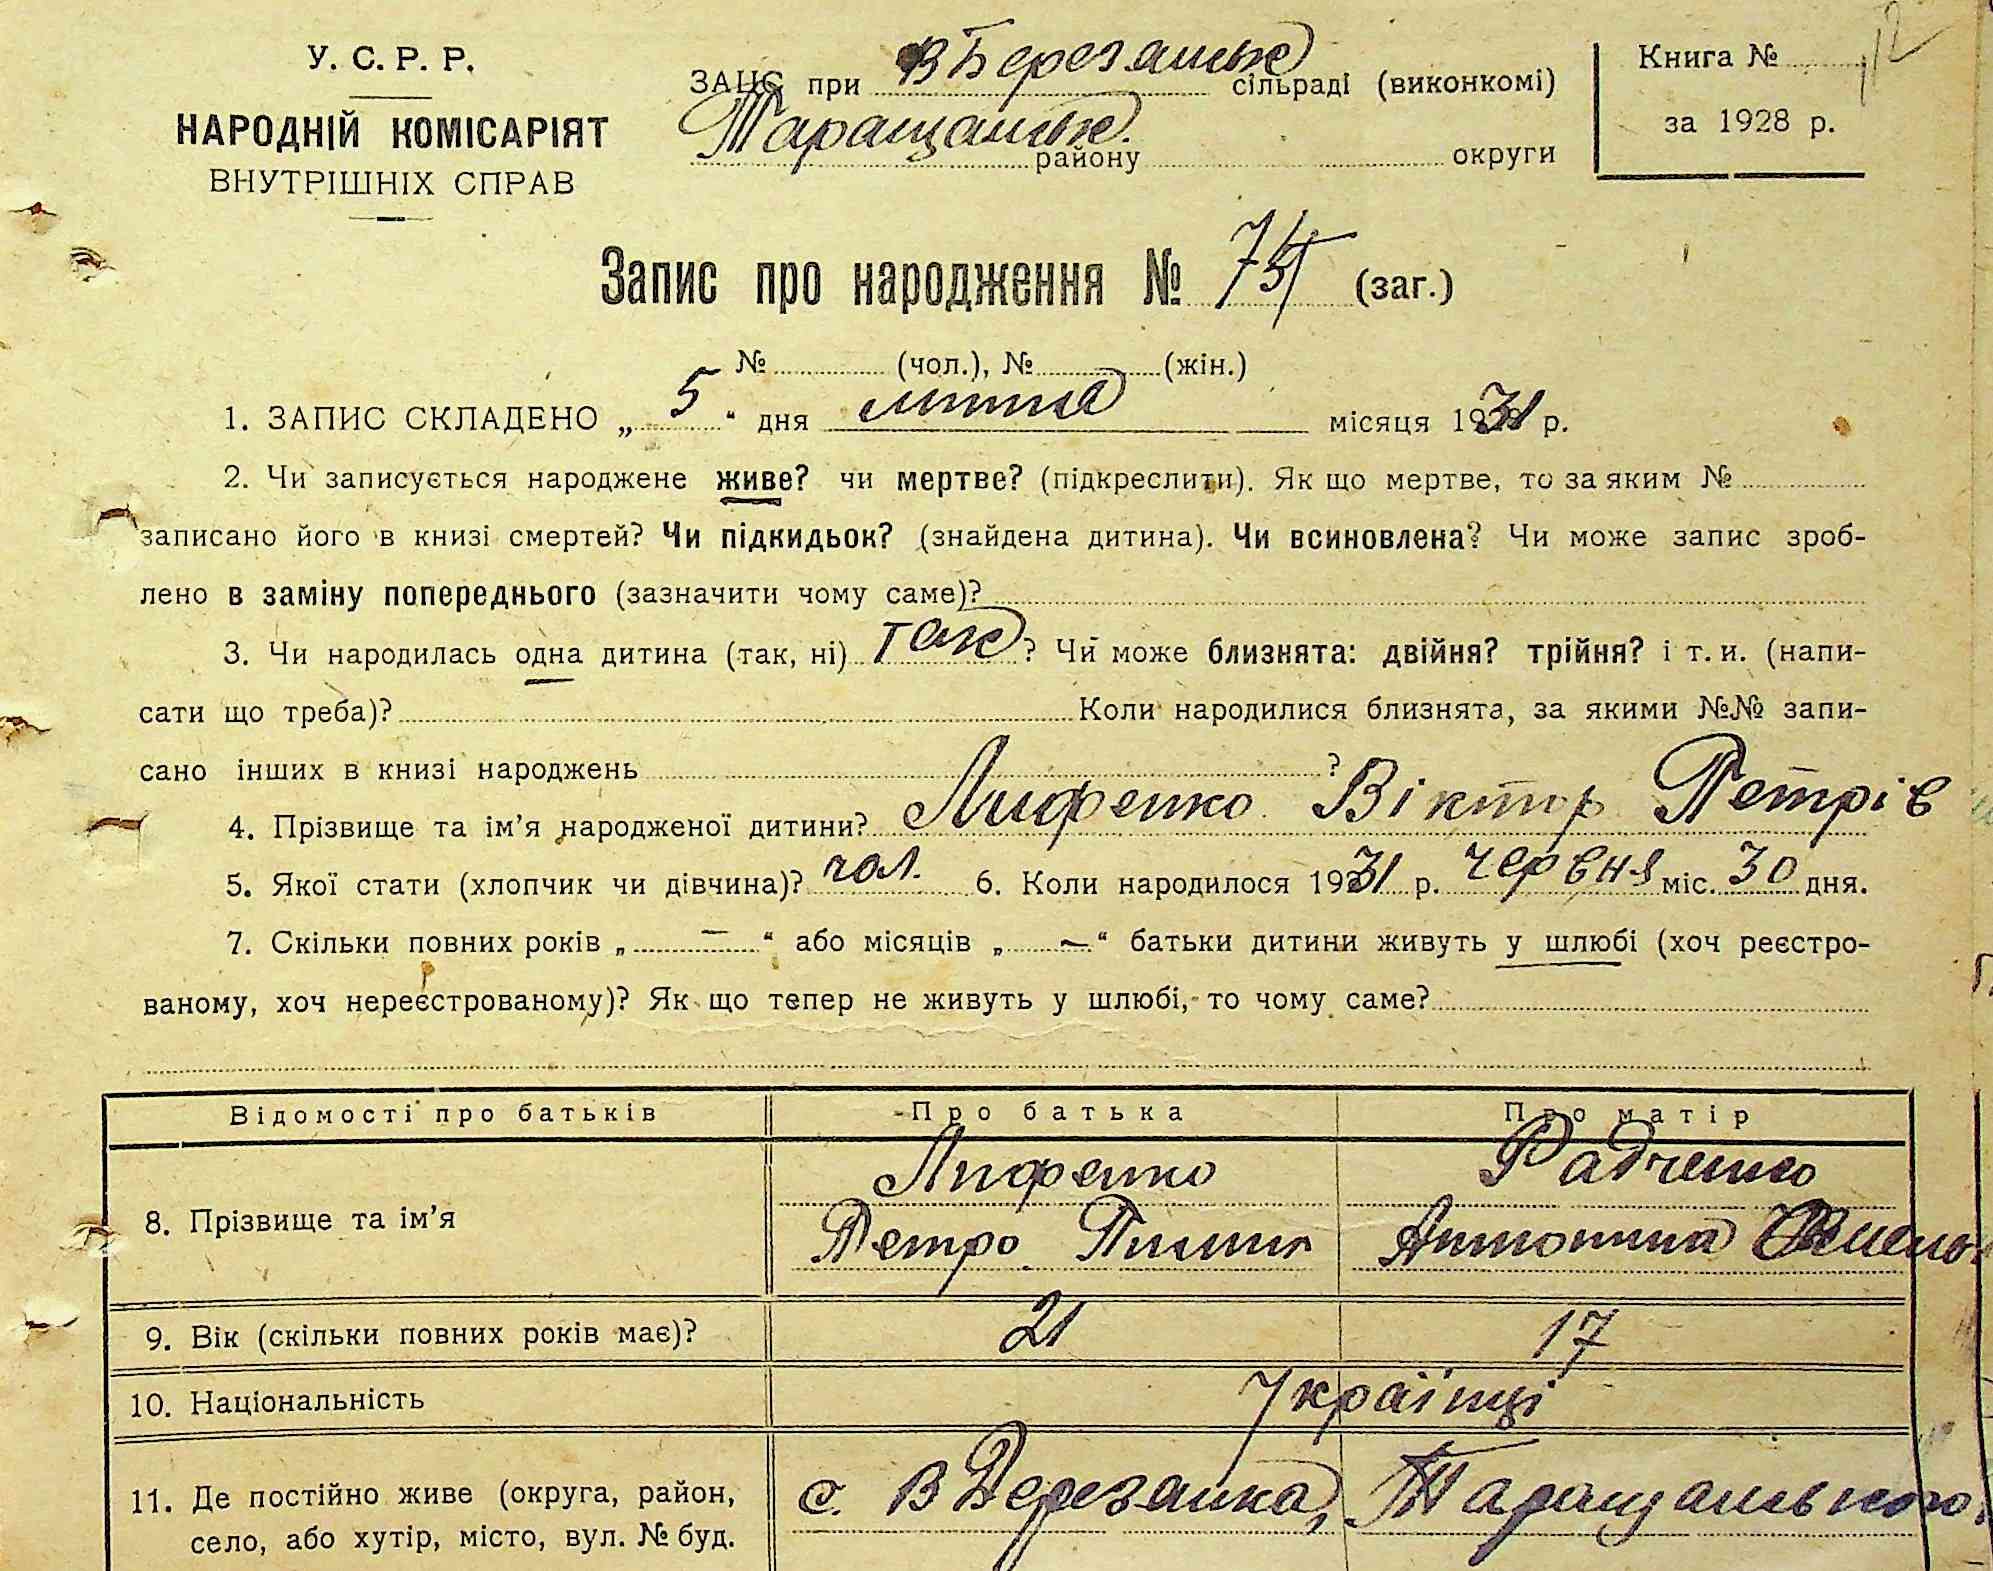 У. С. Р. Р.
НАРОДНІЙ КОМІСАРІЯТ
ВНУТРІШНІХ СПРАВ
ЗАЦС при В Березанськ сільраді (виконкомі)
Таращанськ. району округи
Книга №
за 1928 р.
Запис про народження № (заг.)
№ (чол.), № (жін.)
1. ЗАПИС СКЛАДЕНО „ 5 “ дня липня місяця 1931 р.
2. Чи записується народжене живе? чи мертве? (підкреслити). Як що мертве, то за яким №
записано його в книзі смертей? Чи підкидьок? (знайдена дитина). Чи всиновлена? Чи може запис зроб-
лено в заміну попереднього (зазначити чому саме)?
3. Чи народилась одна дитина (так, ні) так ? Чи може близнята: двійня? трійня? і т. и. (напи-
сати що треба)? Коли народилися близнята, за якими №№ запи-
сано інших в книзі народжень ?
4. Прізвище та ім’я народженої дитини? Лифенко Віктор Петрів
5. Якої стати (хлопчик чи дівчина)? чол. 6. Коли народилося 1931 р. червня міс. 30 дня.
7. Скільки повних років „ — “ або місяців „ — “ батьки дитини живуть у шлюбі (хоч реєстро-
ваному, хоч нереєстрованому)? Як що тепер не живуть у шлюбі, то чому саме?
Відомості про батьків Про батька Про матір
8. Прізвище та ім’я Лифенко Радченко
Петро Антонина
9. Вік (скільки повних років має)? 21 17
10. Національність Українці
11. Де постійно живе (округа, район, с. В Березанка, Таращанського
село, або хутір, місто, вул. № буд.